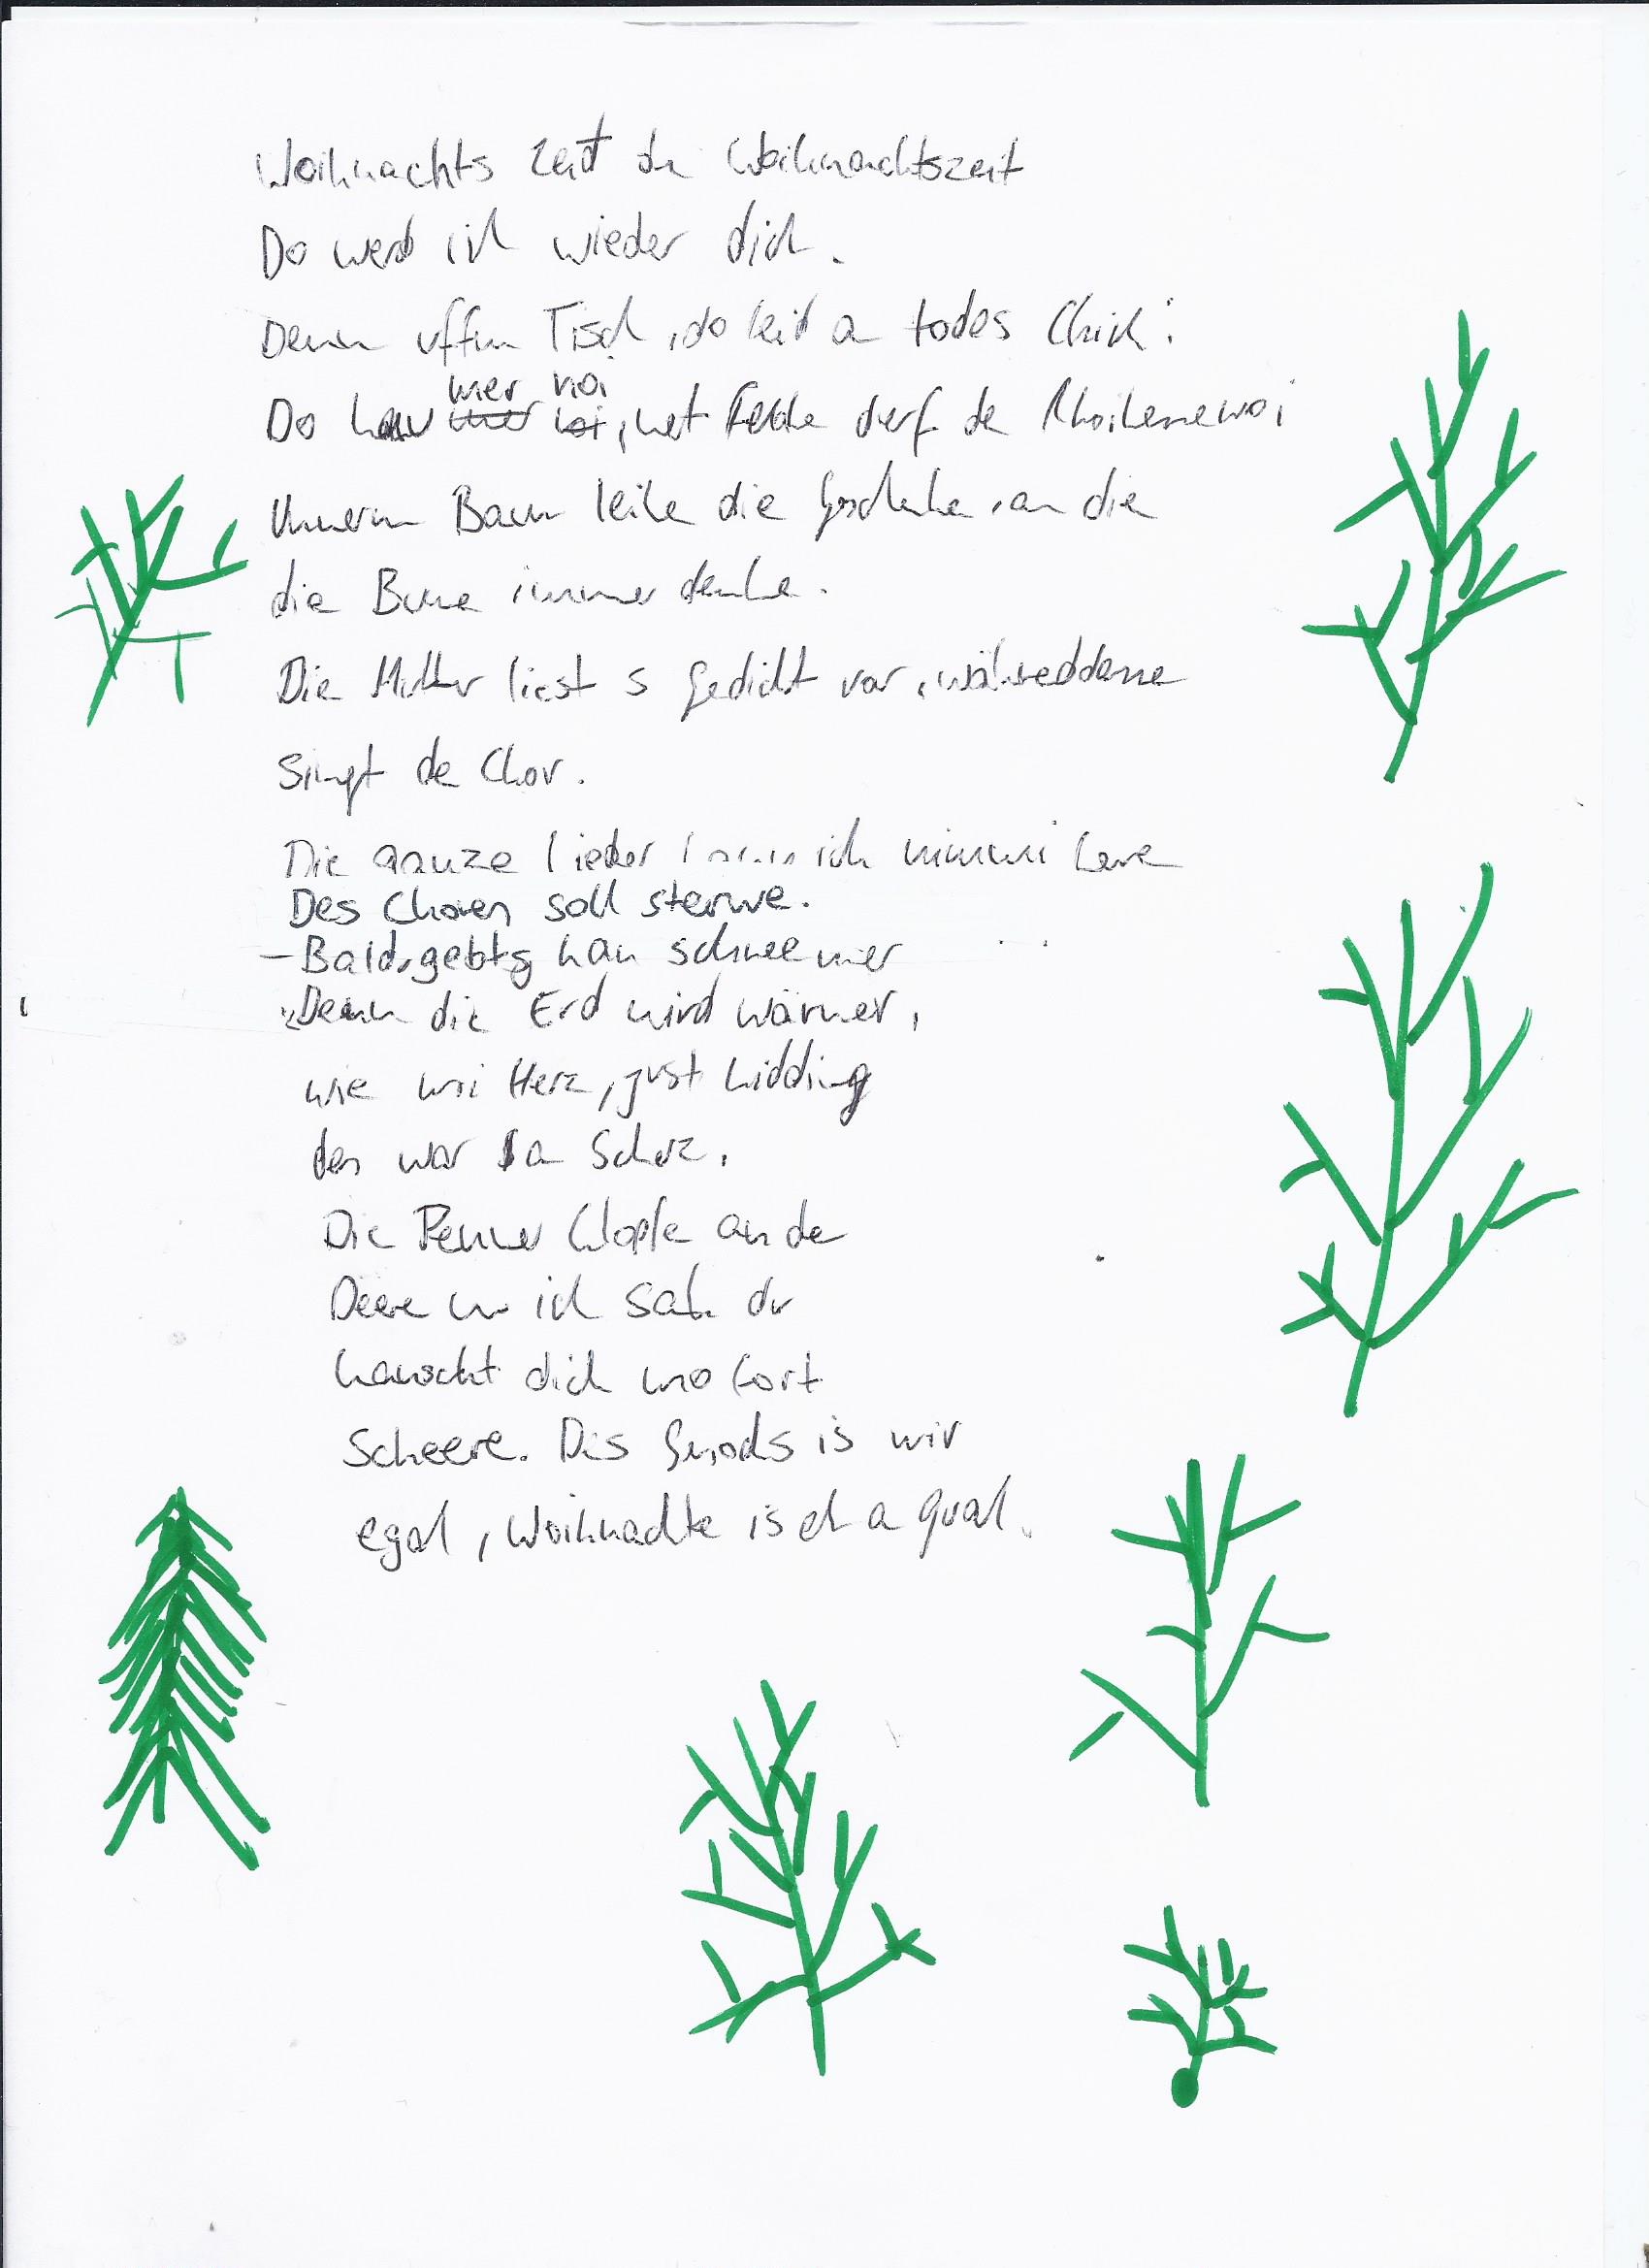 Woihnachts Zeit du Woihnachtszeit
Do werd ich wieder dick.
Denn uffm Tisch, do leit a todes Chick!
Do hau mer noi, net fehle derf de Rhoihessewoi
Unnerm Baum leihe die Geschenke, an die
die Buwe immer denke.
Die Mutter liest s Gedicht vor, währeddesse
singt de Chor.
Die ganze Lieder kann ich nimmi here
Des soll sterwe.
- Bald gebts kan schnee mer
Denn die Erd wird wärmer,
wie moi Herz, just kidding
des war a Scherz.
Die Penner klopfe an de
Deere un ich sah du
kanscht dich mo fort
Scheere. Des is mir
egal, Woihnachte isch a Qual.